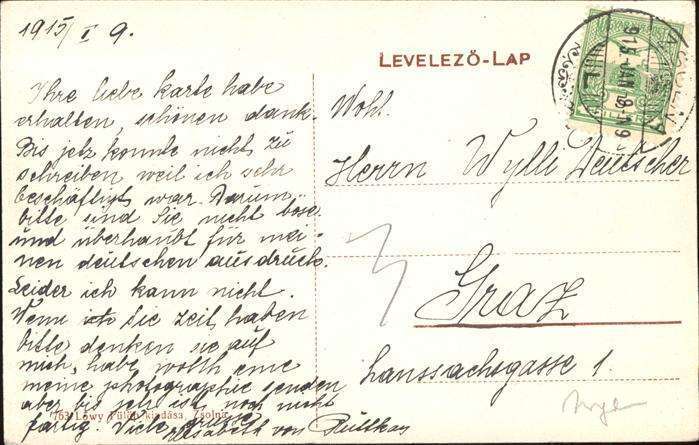 1915/I 9.
LEVELEZŐ-LAP
Ihre liebe karte habe
erhalten, schönen dank.
Bis jetz konnte nicht zu
schreiben weil ich sehr
beschäftigt war. Darum
bitte sind Sie nicht böse.
und überhaubt für mei-
nen deutschen ausdruck.
Leider ich kann nicht.
Wenn ich Sie Zeit haben
bitte denken sie auf
mich, habe wollte eine
meine photographie senden
aber bis jetz ist noch nicht
färtig. Viele grüsse
Elisabeth von Ruttkay
763 Lőwy Fülöp kiadása, Zsolna
Wohl.
Herrn Wylli Deutscher
Graz
Hanssachsgasse 1.